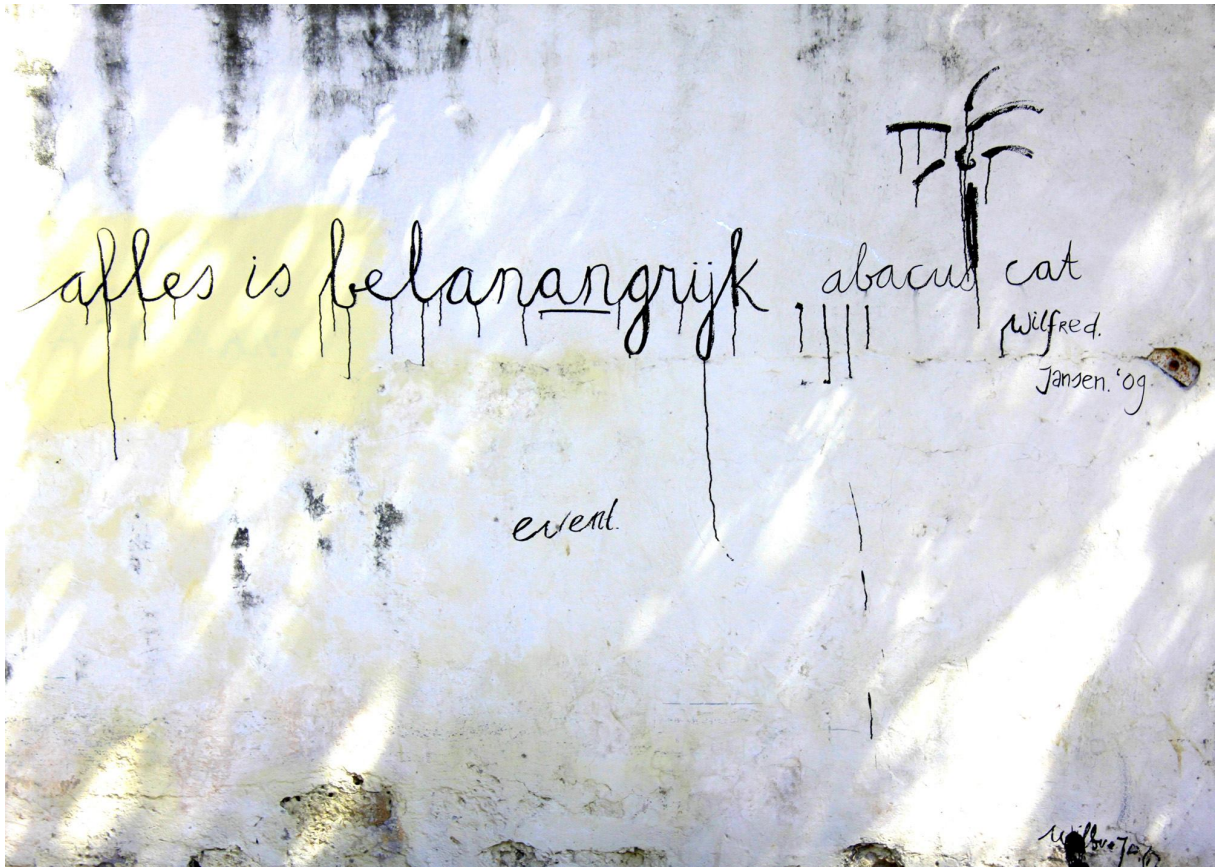 alles is belanangrijk abacus cat
Wilfred.
Jansen. '09
event.